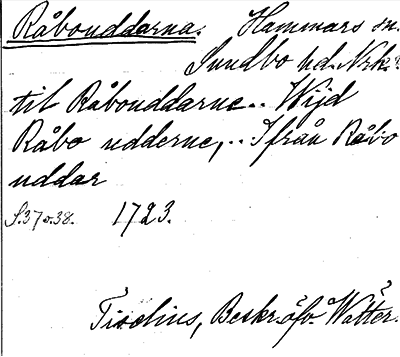 Råbouddarna. Hammars sn.
Sundbo hd. Nrk.
til Råbouddarne.. Wijd
Råbo udderne,.. Ifrån Råbo
uddar
S. 37 o. 38. 1723.
Tiselius, Beskr. öfv. Wätter.